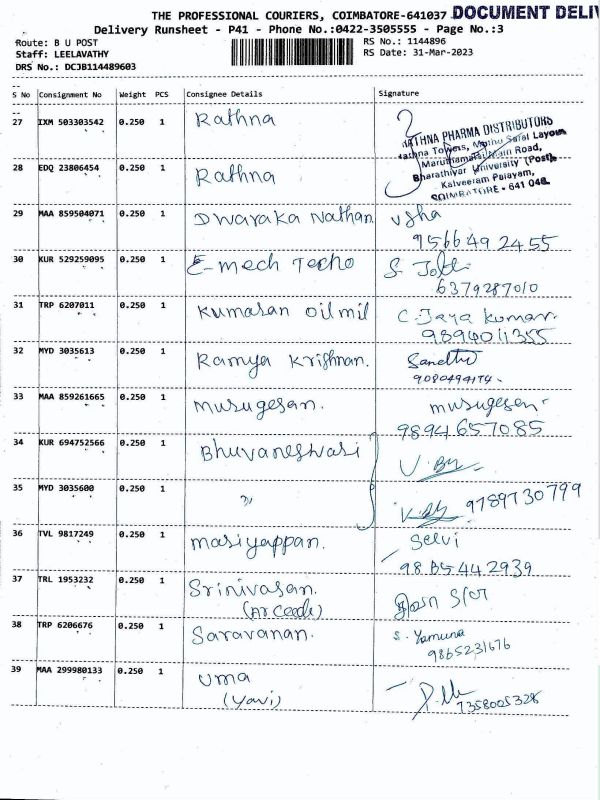 THE PROFESSIONAL COURIERS, COIMBATORE-641037 DOCUMENT DELIV
Delivery Runsheet - P41 - Phone No.:0422-3505555 - Page No.:3
Route: B U POST RS No.: 1144896
Staff: LEELAVATHY RS Date: 31-Mar-2023
DRS No.: DCJB114489603
S No Consignment No Weight PCS Consignee Details Signature
27 IXM 503303542 0.250 1 Rathna
RATHNA PHARMA DISTRIBUTORS
Rathna Towers, Muthu Layout
Maruthamalai Main Road,
Bharathiyar University (Post),
Kalveeram Palayam,
COIMBATORE - 641 046.
28 EDQ 23806454 0.250 1 Rathna
29 MAA 859504071 0.250 1 Dwaraka Nathan. Usha
9566492455
30 KUR 529259095 0.250 1 E-mech Techo S.
6379287010
31 TRP 6207011 0.250 1 Kumasan oil mil C. Jaya Kumar.
9894011355
32 MYD 3035613 0.250 1 Ramya Krishnan.
33 MAA 859261665 0.250 1 Musugesan. Musugesan.
9894657085
34 KUR 694752566 0.250 1 Bhuvaneshwasi
35 MYD 3035600 0.250 1 9789730799
36 TVL 9817249 0.250 1 Masiyappan. Selvi
37 TRL 1953232 0.250 1 Srinivasan.
38 TRP 6206676 0.250 1 Saravanan. S. Yamuna
9865231676
39 MAA 299980133 0.250 1 Uma
7358005328